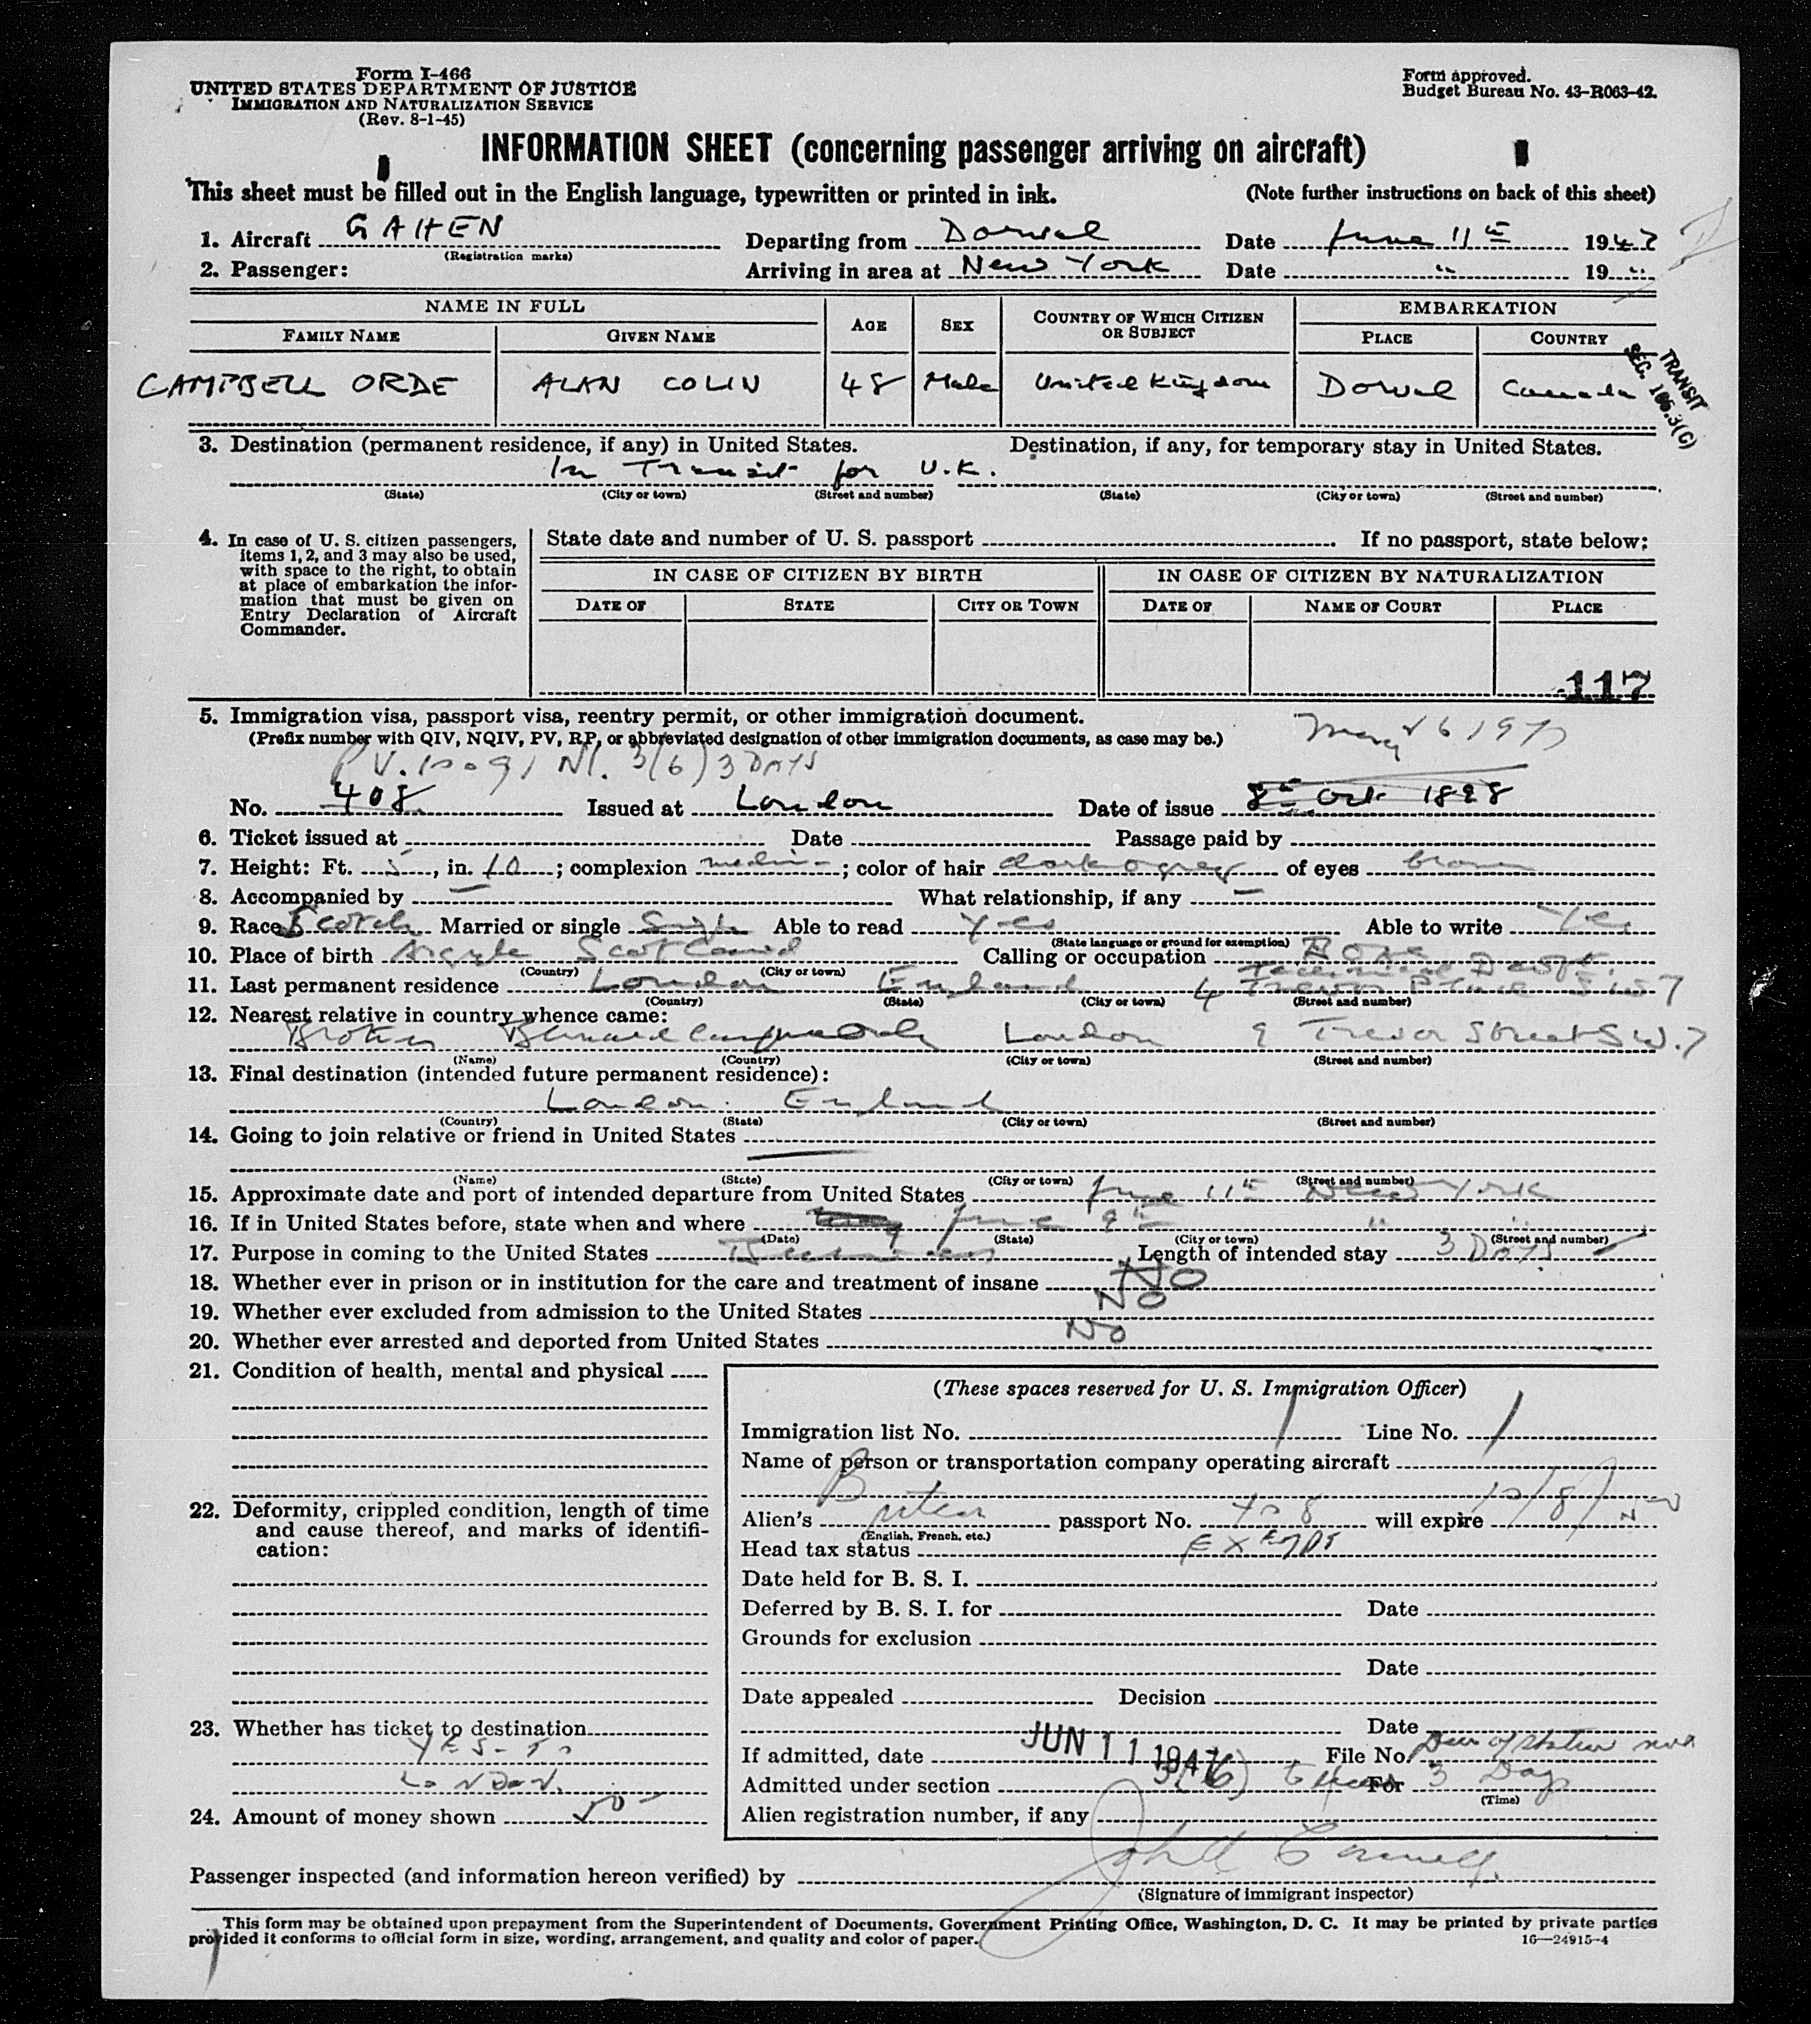 Form I-466
UNITED STATES DEPARTMENT OF JUSTICE
IMMIGRATION AND NATURALIZATION SERVICE
(Rev. 8-1-45)
Form approved.
Budget Bureau No. 43-R063-42.
INFORMATION SHEET (concerning passenger arriving on aircraft)
This sheet must be filled out in the English language, typewritten or printed in ink. (Note further instructions on back of this sheet)
1. Aircraft GAHEN Departing from Dorval Date June 11th 1947
(Registration marks)
2. Passenger: Arriving in area at New York Date " 19 "
NAME IN FULL AGE SEX COUNTRY OF WHICH CITIZEN OR SUBJECT EMBARKATION
FAMILY NAME GIVEN NAME PLACE COUNTRY
CAMPBELL ORDE ALAN COLIN 48 Male United Kingdom Dorval Canada
TRANSIT
SEC. 165.3(C)
3. Destination (permanent residence, if any) in United States. Destination, if any, for temporary stay in United States.
In Transit for U.K.
(State) (City or town) (Street and number) (State) (City or town) (Street and number)
4. In case of U. S. citizen passengers, items 1, 2, and 3 may also be used, with space to the right, to obtain at place of embarkation the information that must be given on Entry Declaration of Aircraft Commander.
State date and number of U. S. passport If no passport, state below:
IN CASE OF CITIZEN BY BIRTH IN CASE OF CITIZEN BY NATURALIZATION
DATE OF STATE CITY OR TOWN DATE OF NAME OF COURT PLACE
117
5. Immigration visa, passport visa, reentry permit, or other immigration document.
(Prefix number with QIV, NQIV, PV, RP, or abbreviated designation of other immigration documents, as case may be.)
3(6) 3 DAYS
No. 408 Issued at London Date of issue 8th Oct 1898
6. Ticket issued at Date Passage paid by
7. Height: Ft. 5, in. 10; complexion medium; color of hair dark grey of eyes brown
8. Accompanied by — What relationship, if any —
9. Race Scotch Married or single Single Able to read Yes Able to write Yes
(State language or ground for exemption)
10. Place of birth Argyle Scotland Calling or occupation BOAC
Technical Dept.
(Country) (City or town)
11. Last permanent residence London England 4 Trevor Place SW7
(Country) (State) (City or town) (Street and number)
12. Nearest relative in country whence came:
Brother Bernard Campbell Orde London 9 Trevor Street SW.7
(Name) (Country) (City or town) (Street and number)
13. Final destination (intended future permanent residence):
London. England
(Country) (State) (City or town) (Street and number)
14. Going to join relative or friend in United States —
(Name) (State) (City or town) (Street and number)
15. Approximate date and port of intended departure from United States June 11th New York
16. If in United States before, state when and where June 9th " "
(Date) (State) (City or town) (Street and number)
17. Purpose in coming to the United States Business Length of intended stay 3 DAYS
18. Whether ever in prison or in institution for the care and treatment of insane NO
19. Whether ever excluded from admission to the United States NO
20. Whether ever arrested and deported from United States NO
21. Condition of health, mental and physical
22. Deformity, crippled condition, length of time and cause thereof, and marks of identification:
23. Whether has ticket to destination
YES - TO
LONDON.
24. Amount of money shown 50-
(These spaces reserved for U. S. Immigration Officer)
Immigration list No. 1 Line No. 1
Name of person or transportation company operating aircraft
Alien's British passport No. 408 will expire 10/8/
(English, French, etc.)
Head tax status EXEMPT
Date held for B. S. I.
Deferred by B. S. I. for Date
Grounds for exclusion
Date
Date appealed Decision
Date
If admitted, date JUN 11 1947 File No.
Admitted under section 3(6) For 3 Days
(Time)
Alien registration number, if any
Passenger inspected (and information hereon verified) by
(Signature of immigrant inspector)
This form may be obtained upon prepayment from the Superintendent of Documents, Government Printing Office, Washington, D. C. It may be printed by private parties
provided it conforms to official form in size, wording, arrangement, and quality and color of paper.
16—24915-4